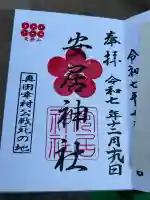 奉拝 令和七年十二月
安居神社
真田幸村公戦死の地
令和七年